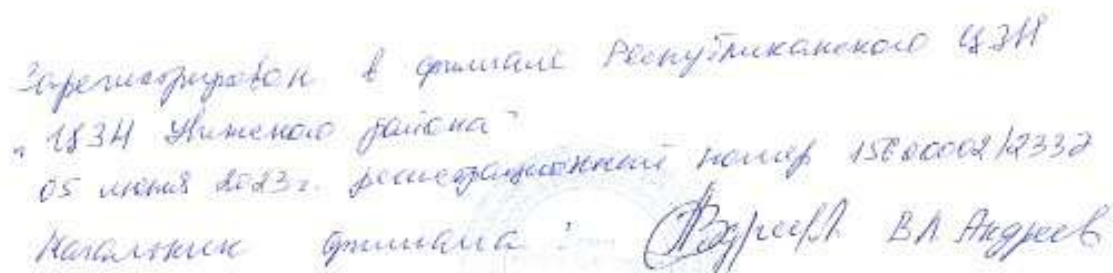 Зарегистрирован в филиале Республиканского ЦЗН
"ЦЗН Увинского района"
05 июня 2023г. регистрационный номер
Начальник филиала: В.А. Андреев